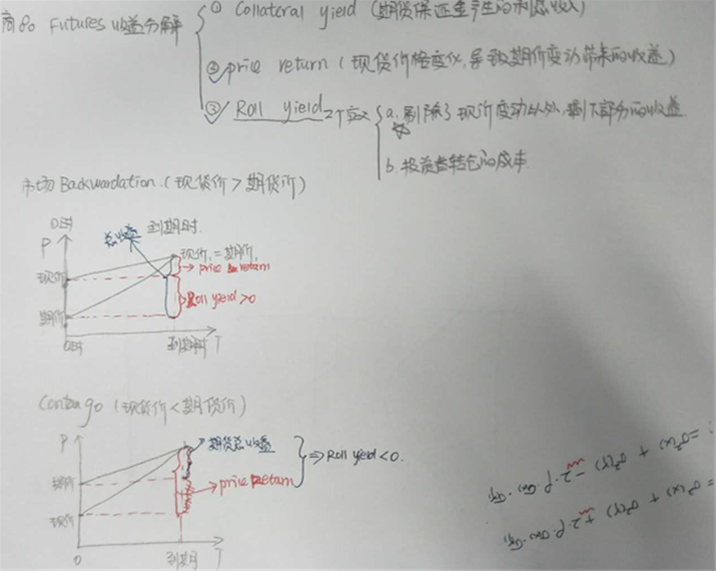 商品 Futures 收益分解
① Collateral yield (期货保证金产生的利息收入)
② price return (现货价格变化,导致期价变动带来的收益)
③ Roll yield 2个定义
a. 剔除了现价变动以外,剩下部分的收益.
b. 投资者转仓的成本.
市场 Backwardation. (现货价 > 期货价)
0时
P
总收益
到期时.
现价 = 期价.
→ price return
现价
Roll yield > 0
期价
0时
到期时
T
Contango (现货价 < 期货价)
P
期货总收益
⇒ Roll yield < 0.
期价
price Return
现价
0
到期
T